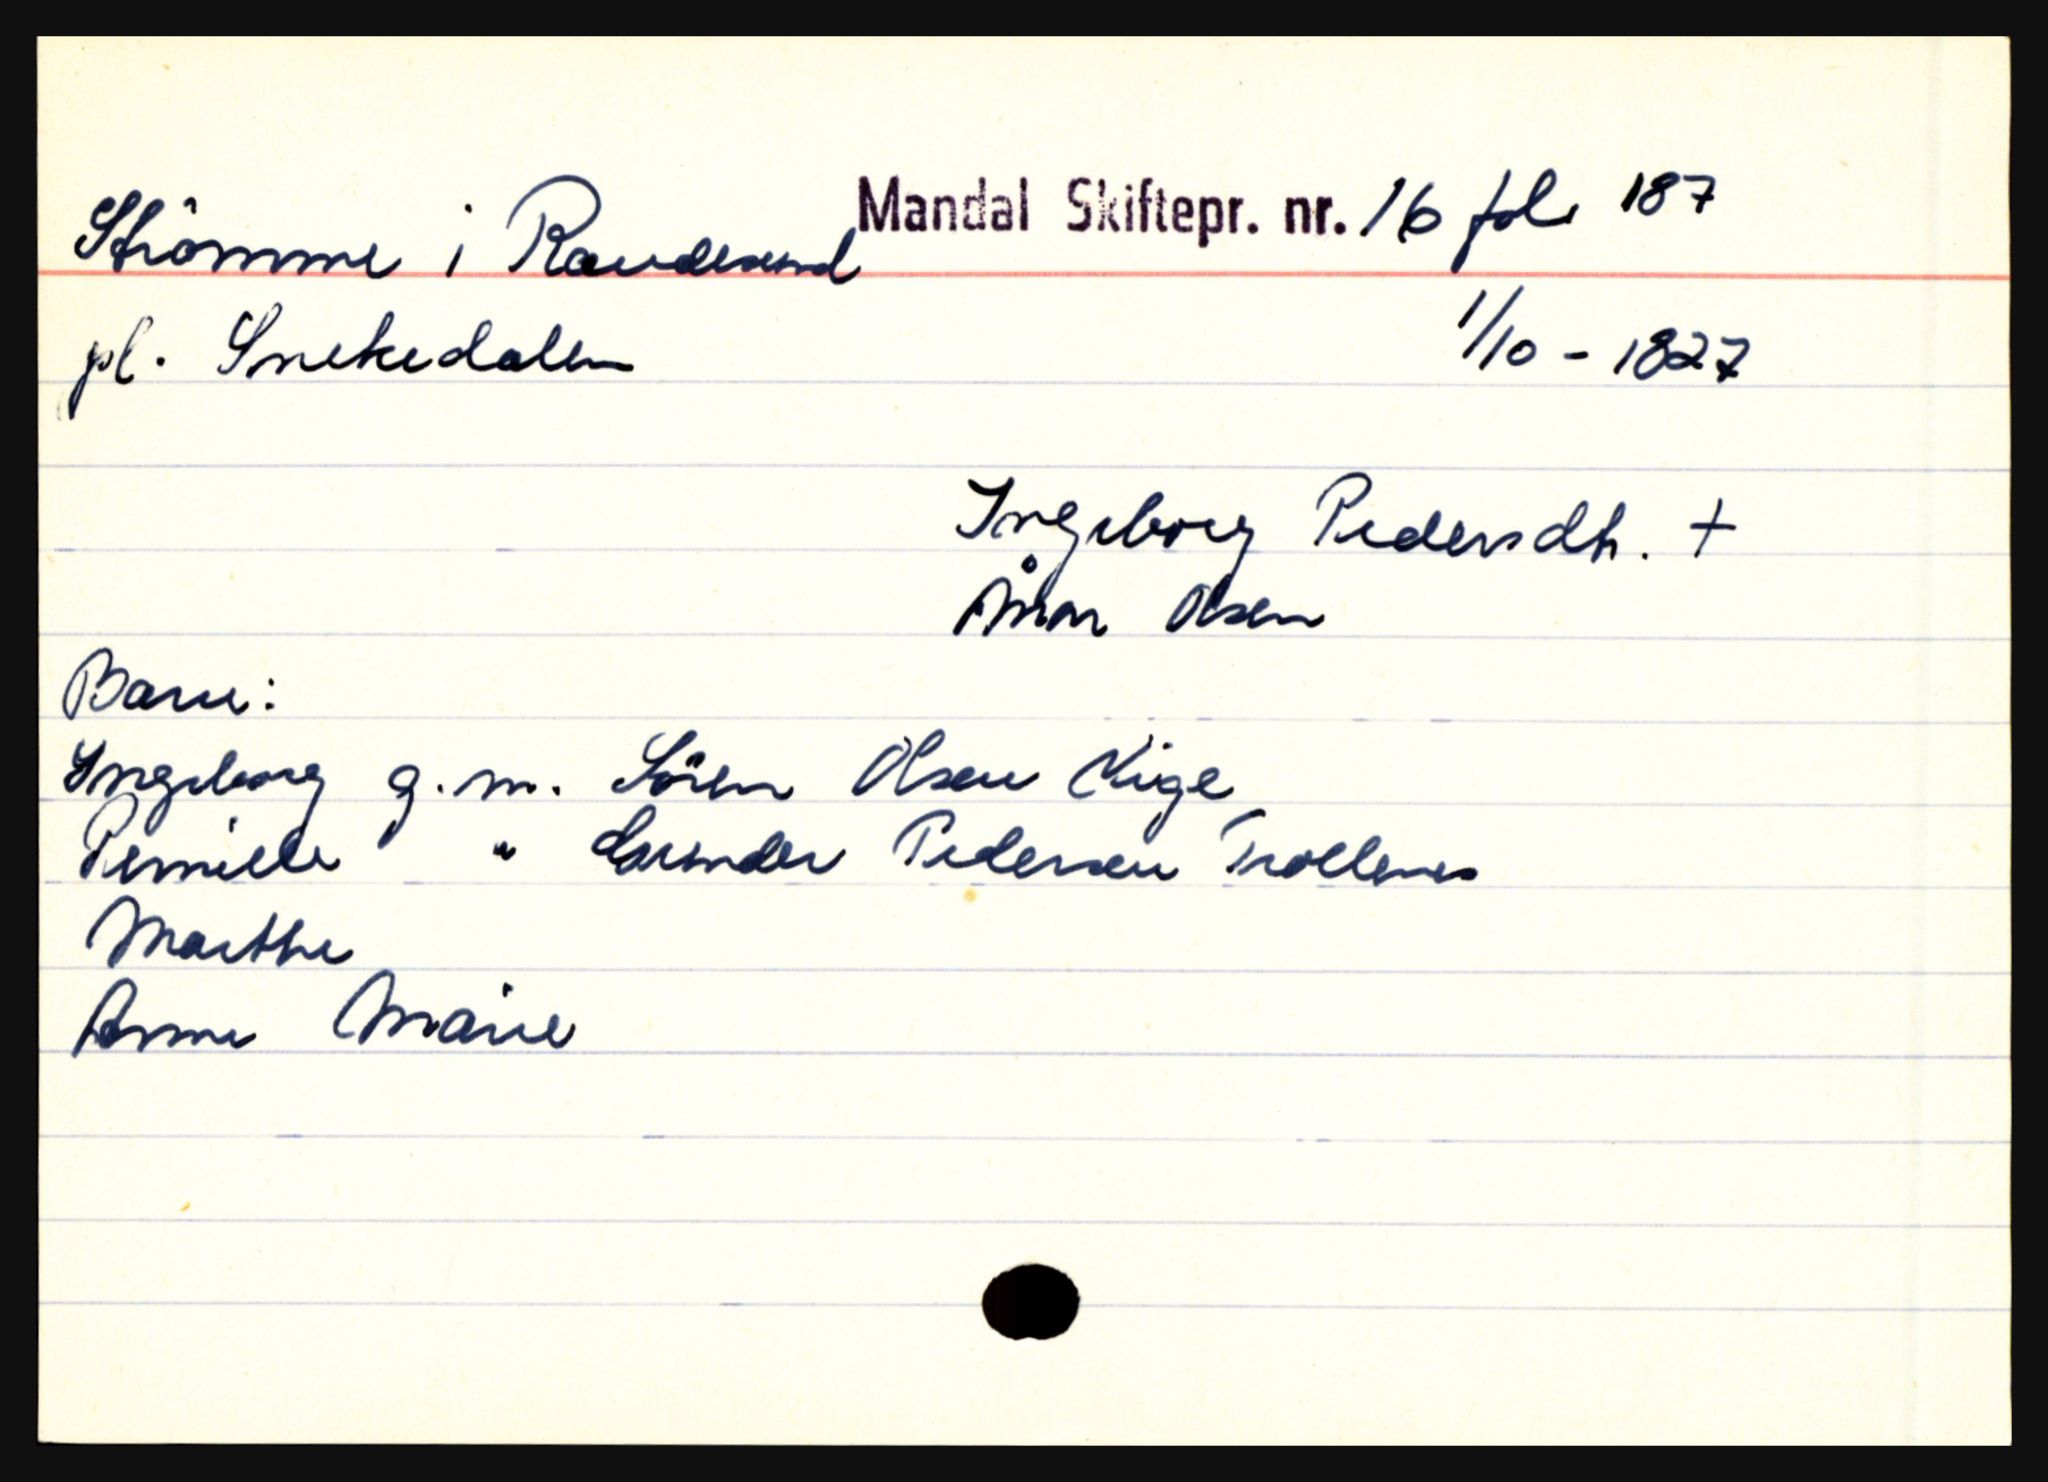 Strømme i Randesund Mandal Skiftepr. nr. 16 fol. 187
pl. Snekedalen 1/10 - 1827
Ingeborg Pedersdtr. +
Olsen
Barn:
Ingeborg g.m. Sören Olsen Kige
Pernille " Gunder Pedersen Trollenes
Marthe
Anne Marie